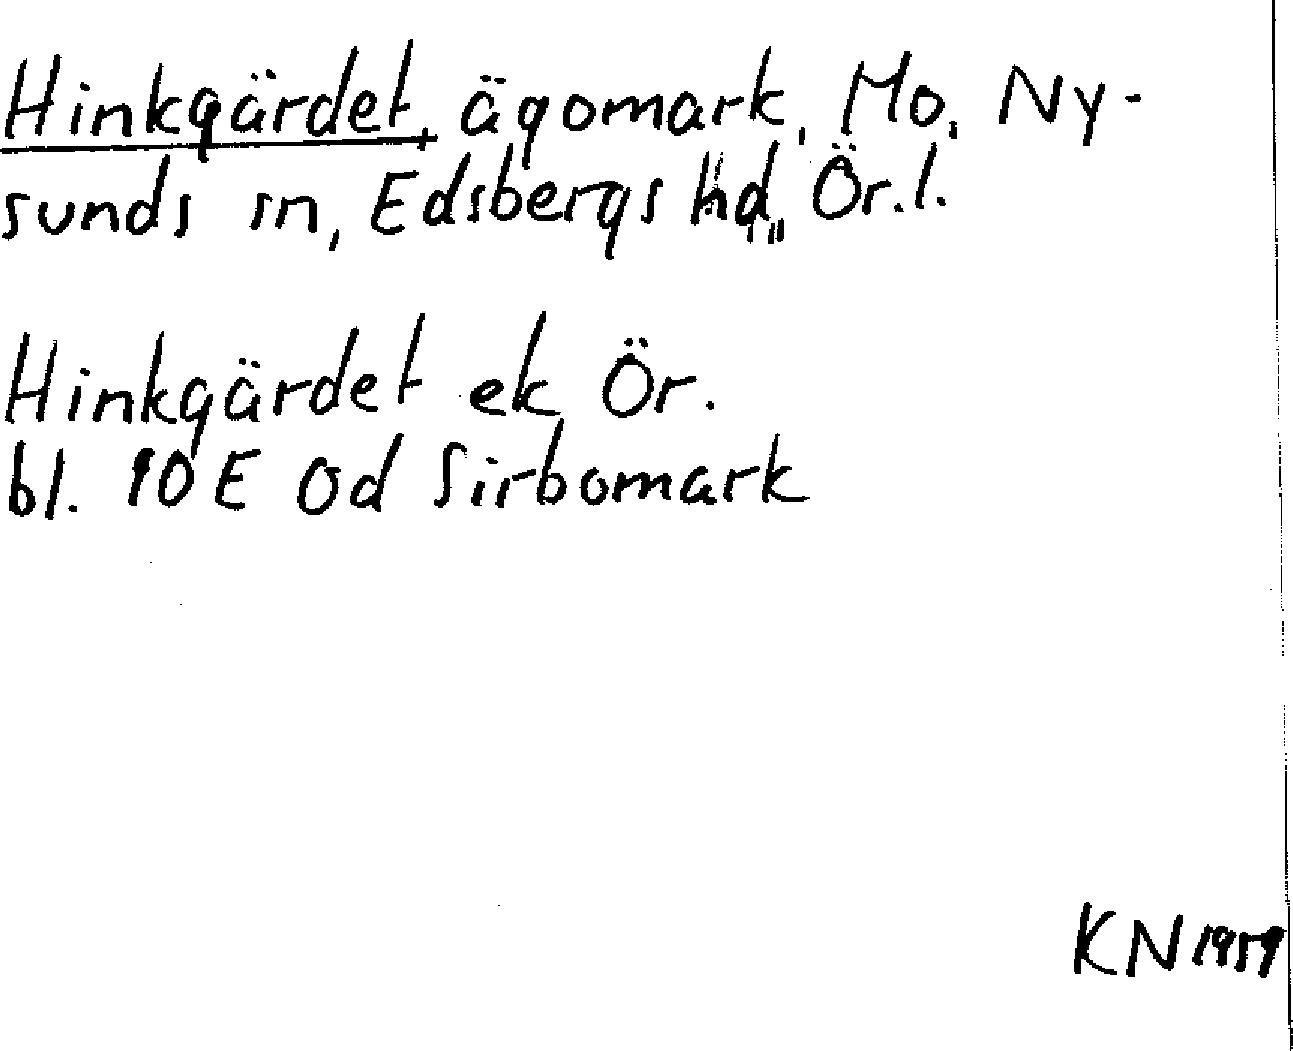 Hinkgärdet, ägomark, Mo, Ny-
sunds sn, Edsbergs hd, Ör.l.
Hinkgärdet ek Ör.
bl. 10 E Od Sirbomark
KN 1959